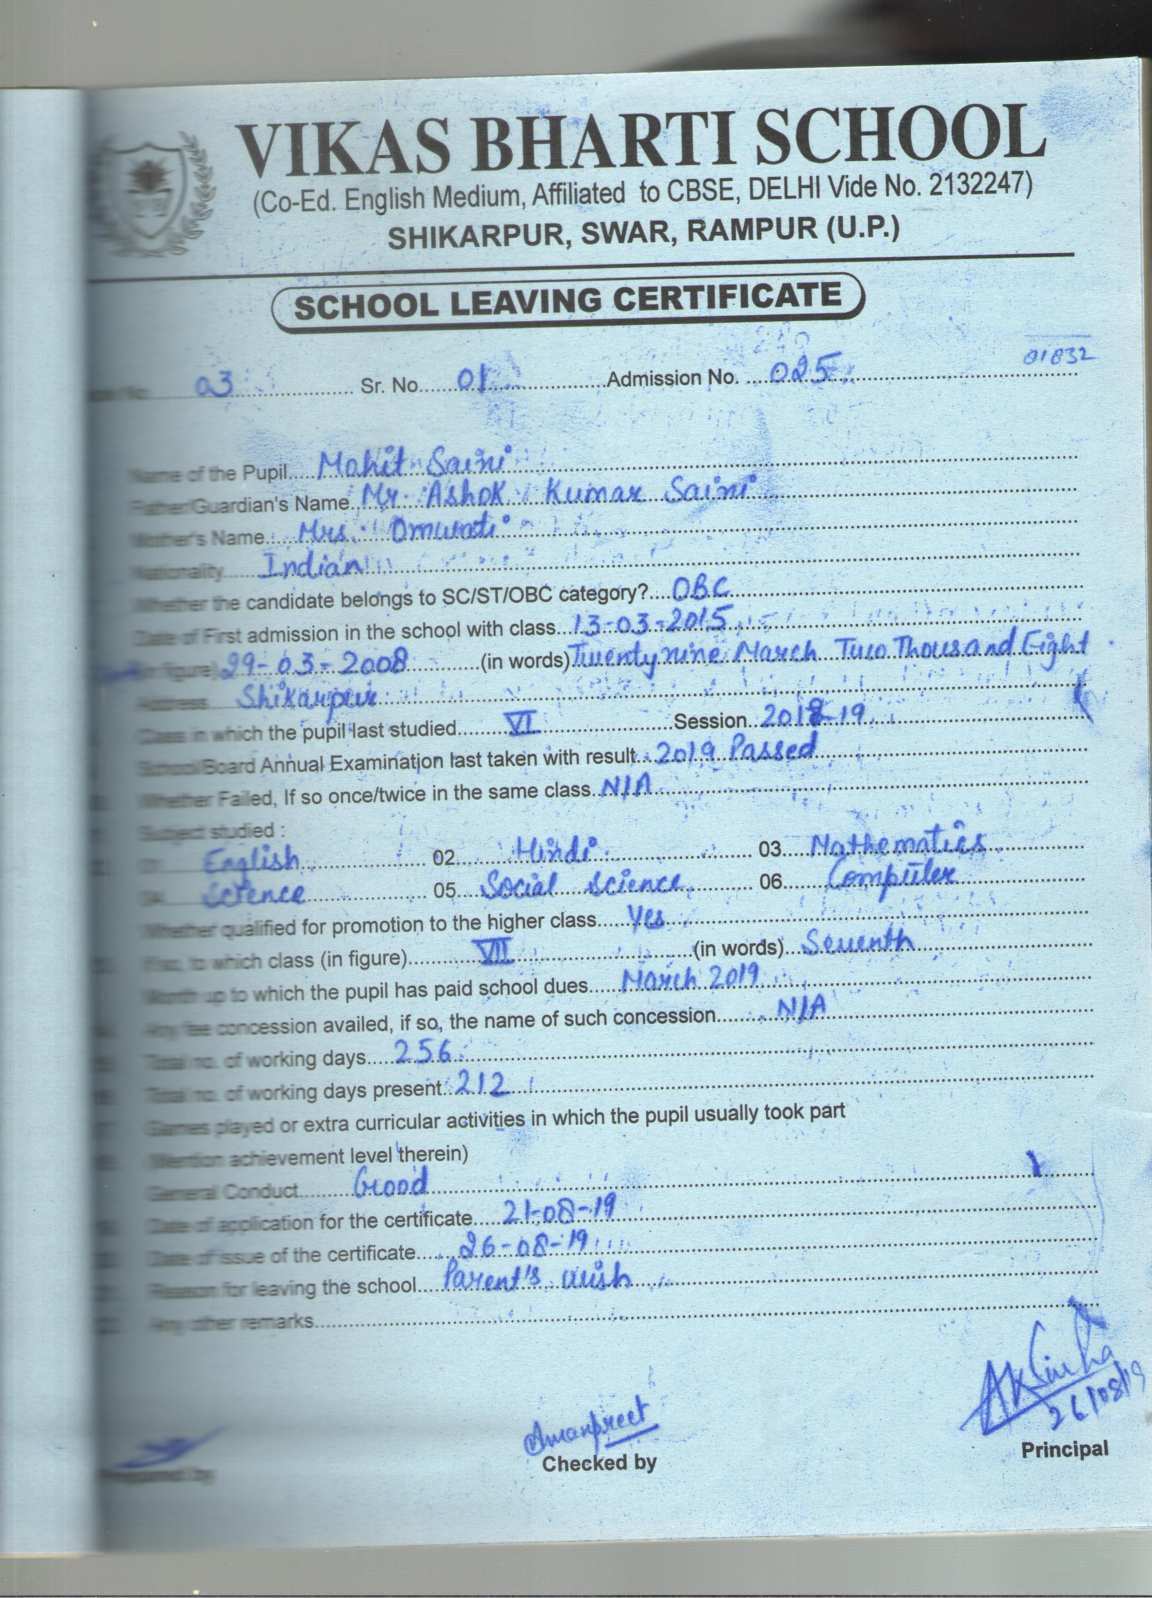 VIKAS BHARTI SCHOOL
(Co-Ed. English Medium, Affiliated to CBSE, DELHI Vide No. 2132247)
SHIKARPUR, SWAR, RAMPUR (U.P.)
SCHOOL LEAVING CERTIFICATE
01832
No. 03 Sr. No. 01 Admission No. 025
Name of the Pupil Mohit Saini
Father/Guardian's Name Mr. Ashok Kumar Saini
Mother's Name Mrs. Omwati
Nationality Indian
Whether the candidate belongs to SC/ST/OBC category? OBC
Date of First admission in the school with class 13-03-2015
(in figure) 29-03-2008 (in words) Twenty nine March Two Thousand Eight
Address Shikarpur
Class in which the pupil last studied VI Session 2018-19
School/Board Annual Examination last taken with result 2019 Passed
Whether Failed, If so once/twice in the same class N/A
Subject studied :
English 02 Hindi 03 Mathematics
Science 05 Social Science 06 Computer
Whether qualified for promotion to the higher class Yes
If so, to which class (in figure) VII (in words) Seventh
Month up to which the pupil has paid school dues March 2019
Any fee concession availed, if so, the name of such concession N/A
Total no. of working days 256
Total no. of working days present 212
Games played or extra curricular activities in which the pupil usually took part
(Mention achievement level therein)
General Conduct Good
Date of application for the certificate 21-08-19
Date of issue of the certificate 26-08-19
Reason for leaving the school Parent's wish
Any other remarks
AKSinha
26/08/19
Amanpreet
Prepared by Checked by Principal